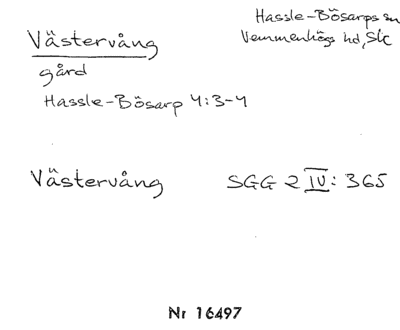 Hassle-Bösarps sn
Västervång
Vemmenhögs hd, Sk
gård
Hassle-Bösarp 4:3-4
Västervång SGG 2 IV: 365
Nr 16497